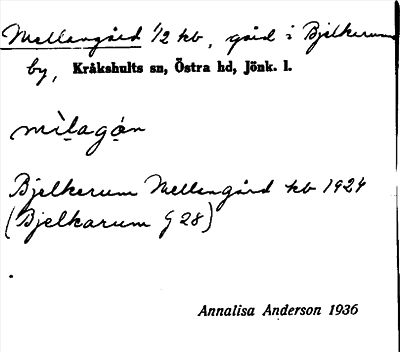 Mellangård 1/2 kb, gård i Bjelkerum
by, Kråkshults sn, Östra hd, Jönk. l.
mìlagán
Bjelkerum Mellangård kb 1924
(Bjelkarum G 28)
Annalisa Anderson 1936